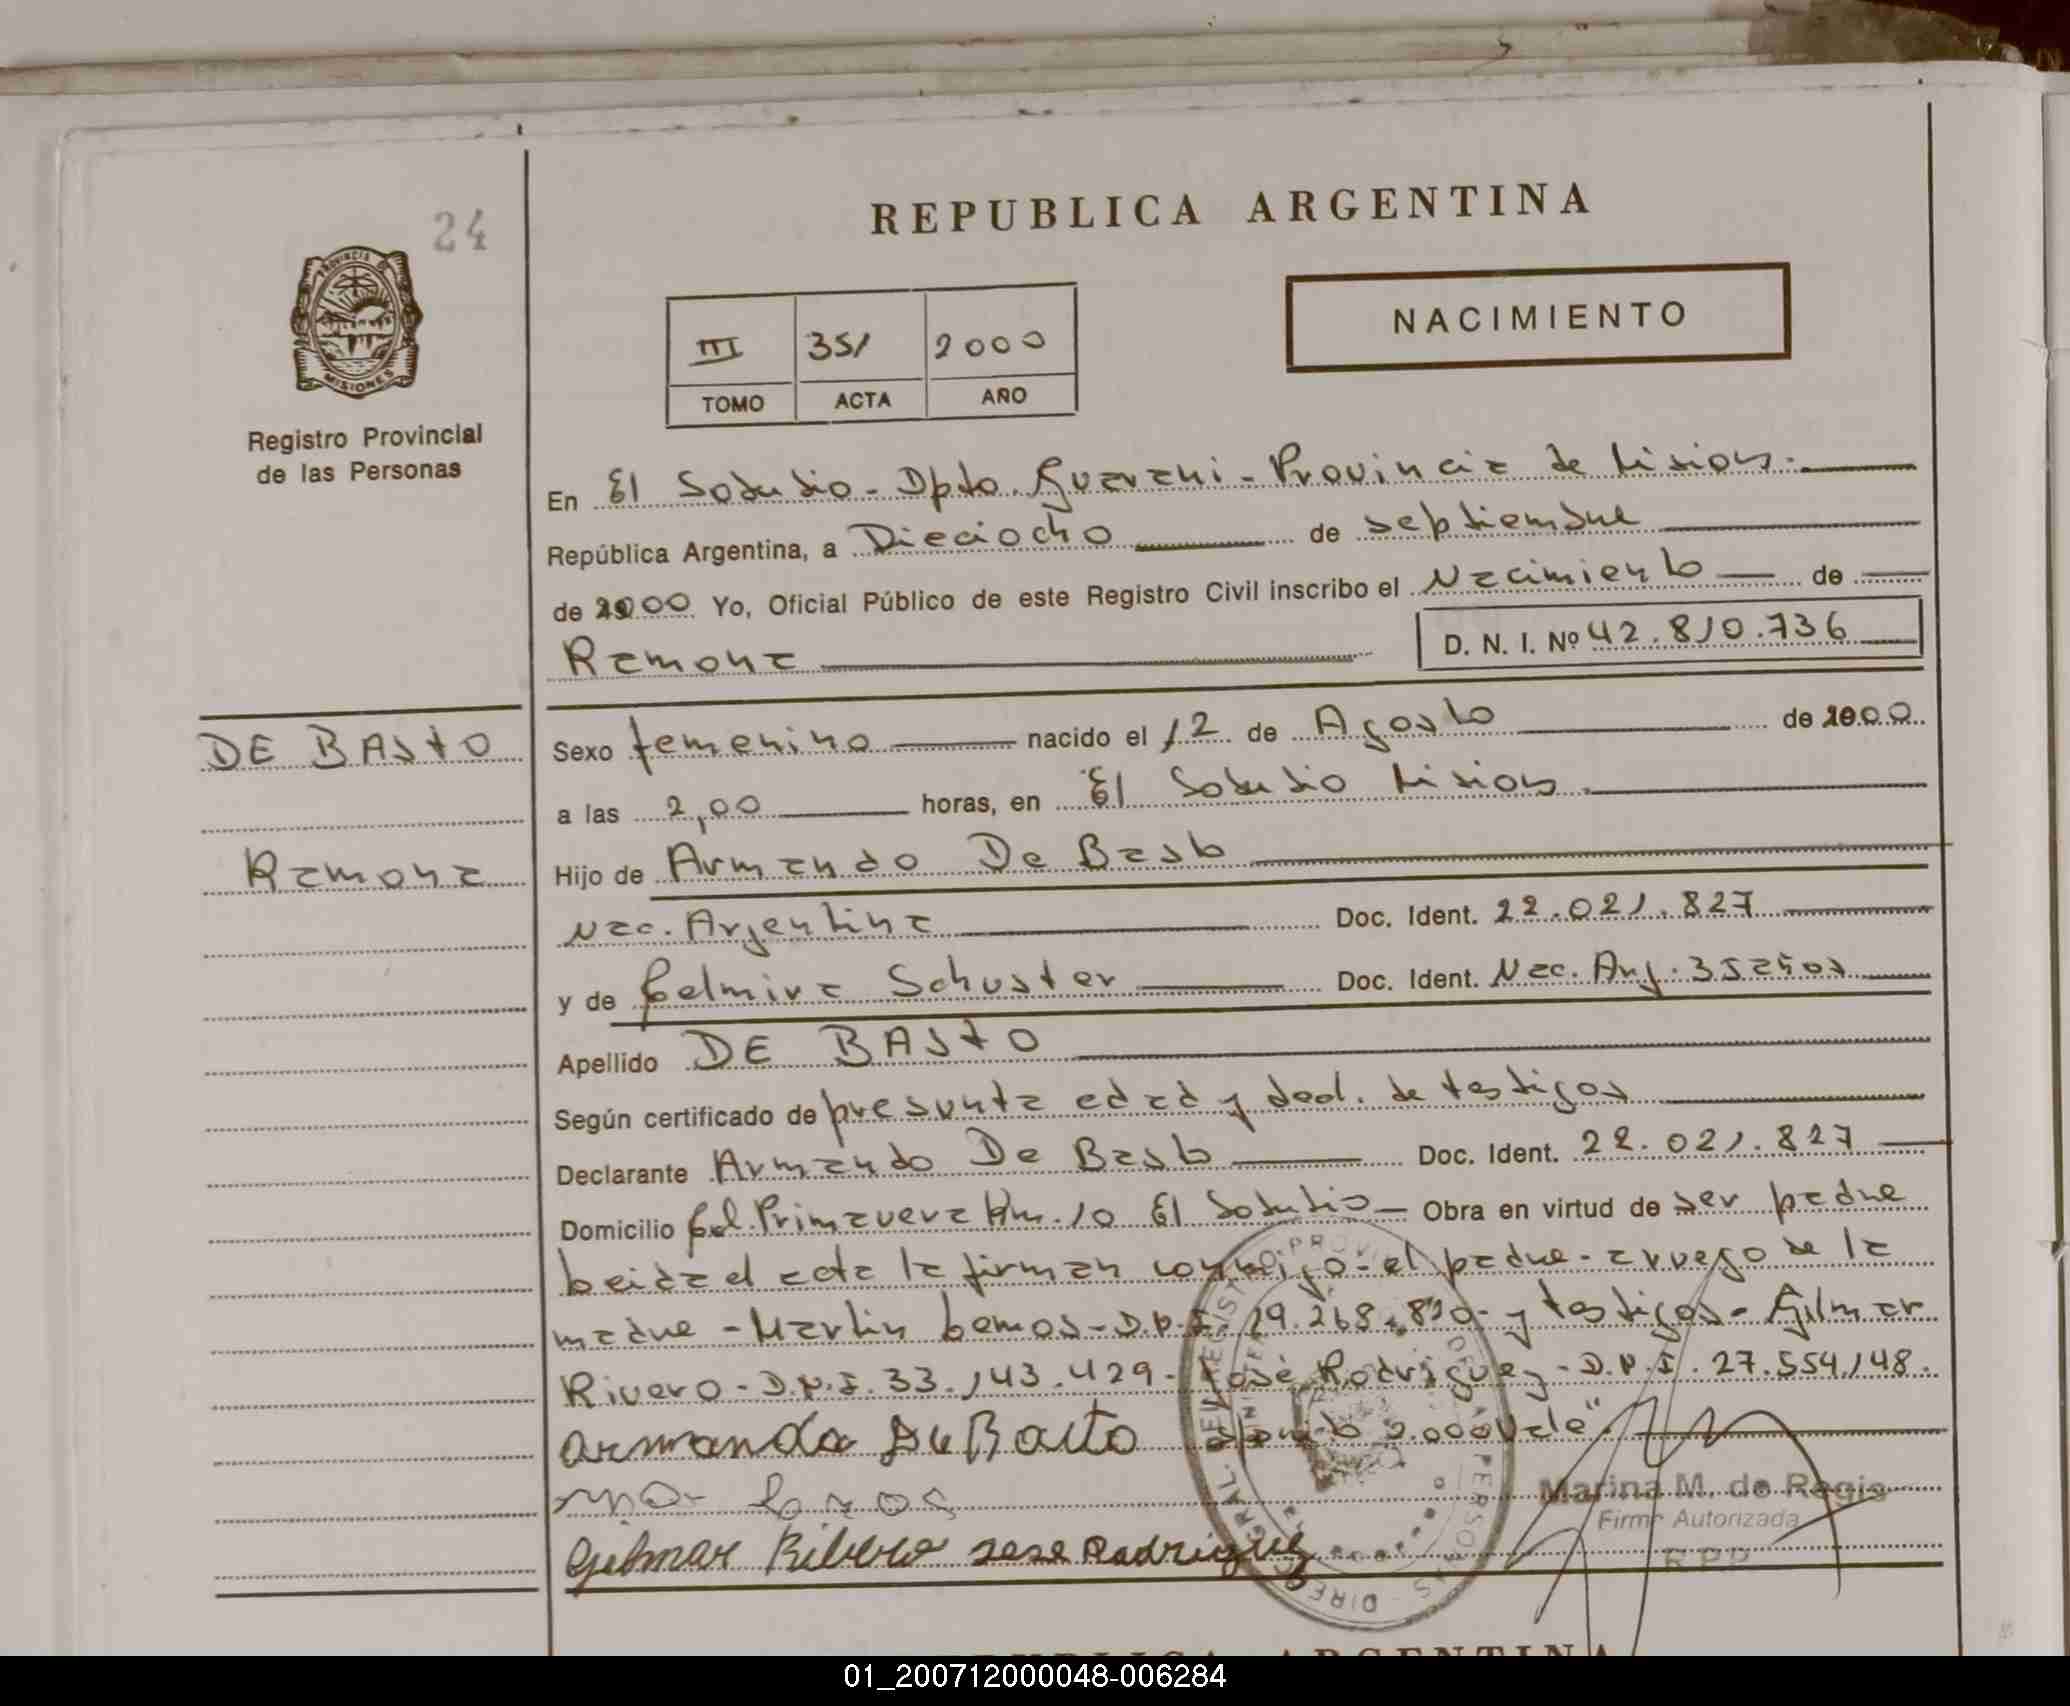 24
REPUBLICA ARGENTINA
PROVINCIA DE
MISIONES
Registro Provincial
de las Personas
III 351 2000
TOMO ACTA AÑO
NACIMIENTO
En El Soberbio - Dpto. Guarani - Provincia de Misiones.
República Argentina, a Dieciocho de septiembre
de 2000 Yo, Oficial Público de este Registro Civil inscribo el Nacimiento de
Ramona D. N. I. Nº 42.810.736
DE BASTO
Ramona
Sexo femenino nacido el 12 de Agosto de 2000
a las 2,00 horas, en El Soberbio Misiones.
Hijo de Armando De Basto
Nac. Argentina Doc. Ident. 22.021.827
y de Celmira Schuster Doc. Ident. Nac. Arg.
Apellido DE BASTO
Según certificado de presunta edad y decl. de testigos
Declarante Armando De Basto Doc. Ident. 22.021.827
Domicilio Col. Primavera Km. 10 El Soberbio - Obra en virtud de ser padre
Leida el acta la firman conmigo - el padre - a ruego de la
madre - Martin Lemos - D.N.I. 29.268.820 - y testigos - Gilmar
Rivero - D.N.I. 33.143.429 - José Rodriguez - D.N.I. 27.554.148.
Armando De Basto 2.000 Vale"
Marina M. de Regio
Firma Autorizada
R P P
Gilmar Ribero Jose Rodriguez
REPUBLICA ARGENTINA
01_200712000048-006284